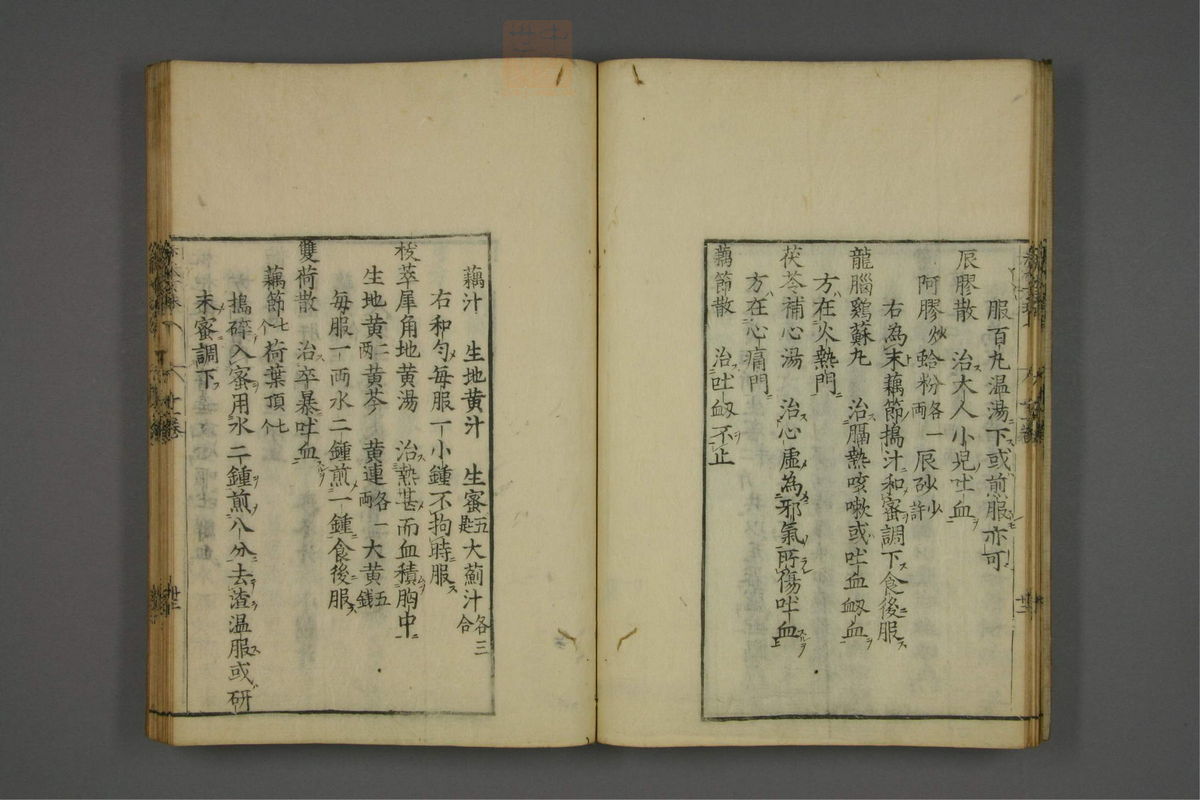 服百九温湯下或煎服亦可
辰膠散　治大人小兒吐血
阿膠炒　蛤粉各一兩　辰砂少許
右為末藕節搗汁和蜜調下食後服
龍腦鷄蘇丸　治膈熱咳嗽或吐血衂血
方在火熱門
茯苓補心湯　治心虛為邪氣所傷吐血
方在心痛門
藕節散　治吐衂不止
藕汁　生地黄汁　生蜜五匙　大薊汁各三合
右和勻每服一小鍾不拘時服
栝蔞犀角地黄湯　治熱甚而血積胸中
生地黄二兩　黄芩　黄連各一兩　大黄五錢
每服一兩水二鍾煎一鍾食後服
雙荷散　治卒暴吐血
藕節七个　荷葉頂七个
搗碎入蜜用水二鍾煎八分去渣温服或研
末蜜調下